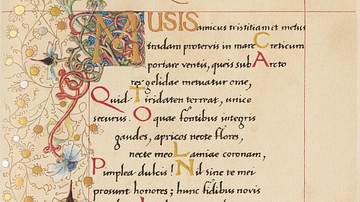 MUSIS amicus tristitiam et metus
tradam protervis in mare Creticum
portare ventis, queis sub Arcto
rex gelidae metuatur orae,
Quid Tiridaten terreat, unice
securus. O quae fontibus integris
gaudes, apricos necte flores,
necte meo Lamiae coronam,
Pimplea dulcis! Nil sine te mei
prosunt honores; hunc fidibus novis